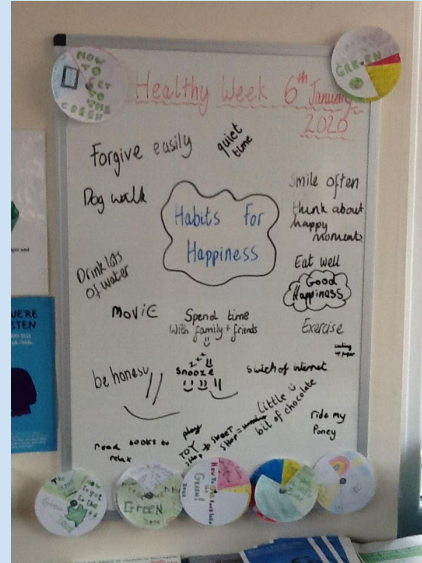 HOW
TO
GET
TO THE
GREEN
GREEN
Healthy Week 6th January
2020
Forgive easily
quiet
time
Dog walk
Smile often
think about
happy
moments
Habits For
Happiness
Drink lots
of water
Eat well
Good
Happiness
Movie
Spend time
With family + friends
Exercise
be honest
snooze
swich of internet
Little
bit of chocolate
ride my
Poney
read books to
relax
play
TOY
shop
SWEET
SHOP
GREEN